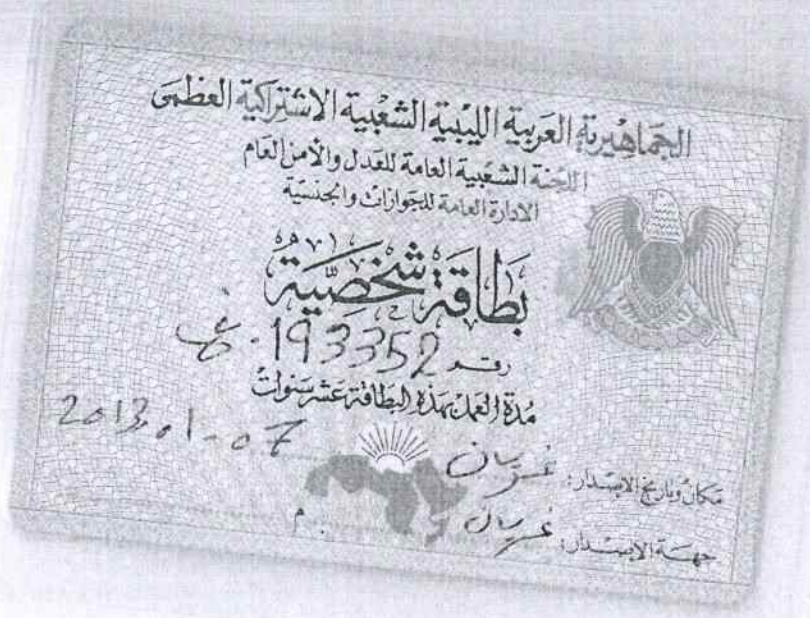 الجماهيرية العربية الليبية الشعبية الاشتراكية العظمى
اللجنة الشعبية العامة للعدل والأمن العام
الادارة العامة للجوازات والجنسية
بطاقة شخصية
رقم 193352 غ
مدة العمل بهذه البطاقة عشر سنوات
مكان وتاريخ الاصدار: غريان 2013.01-07
جهة الاصدار: غريان م